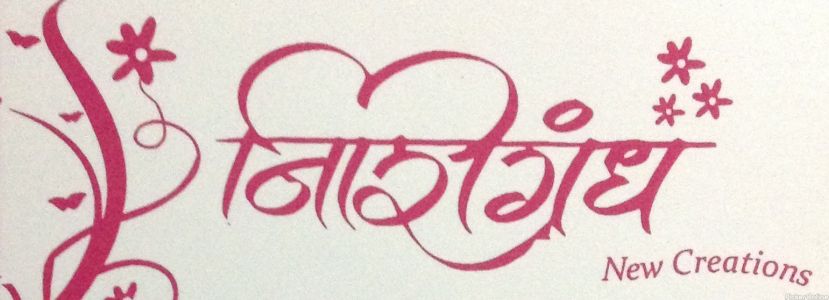 निशिगंध
New Creations